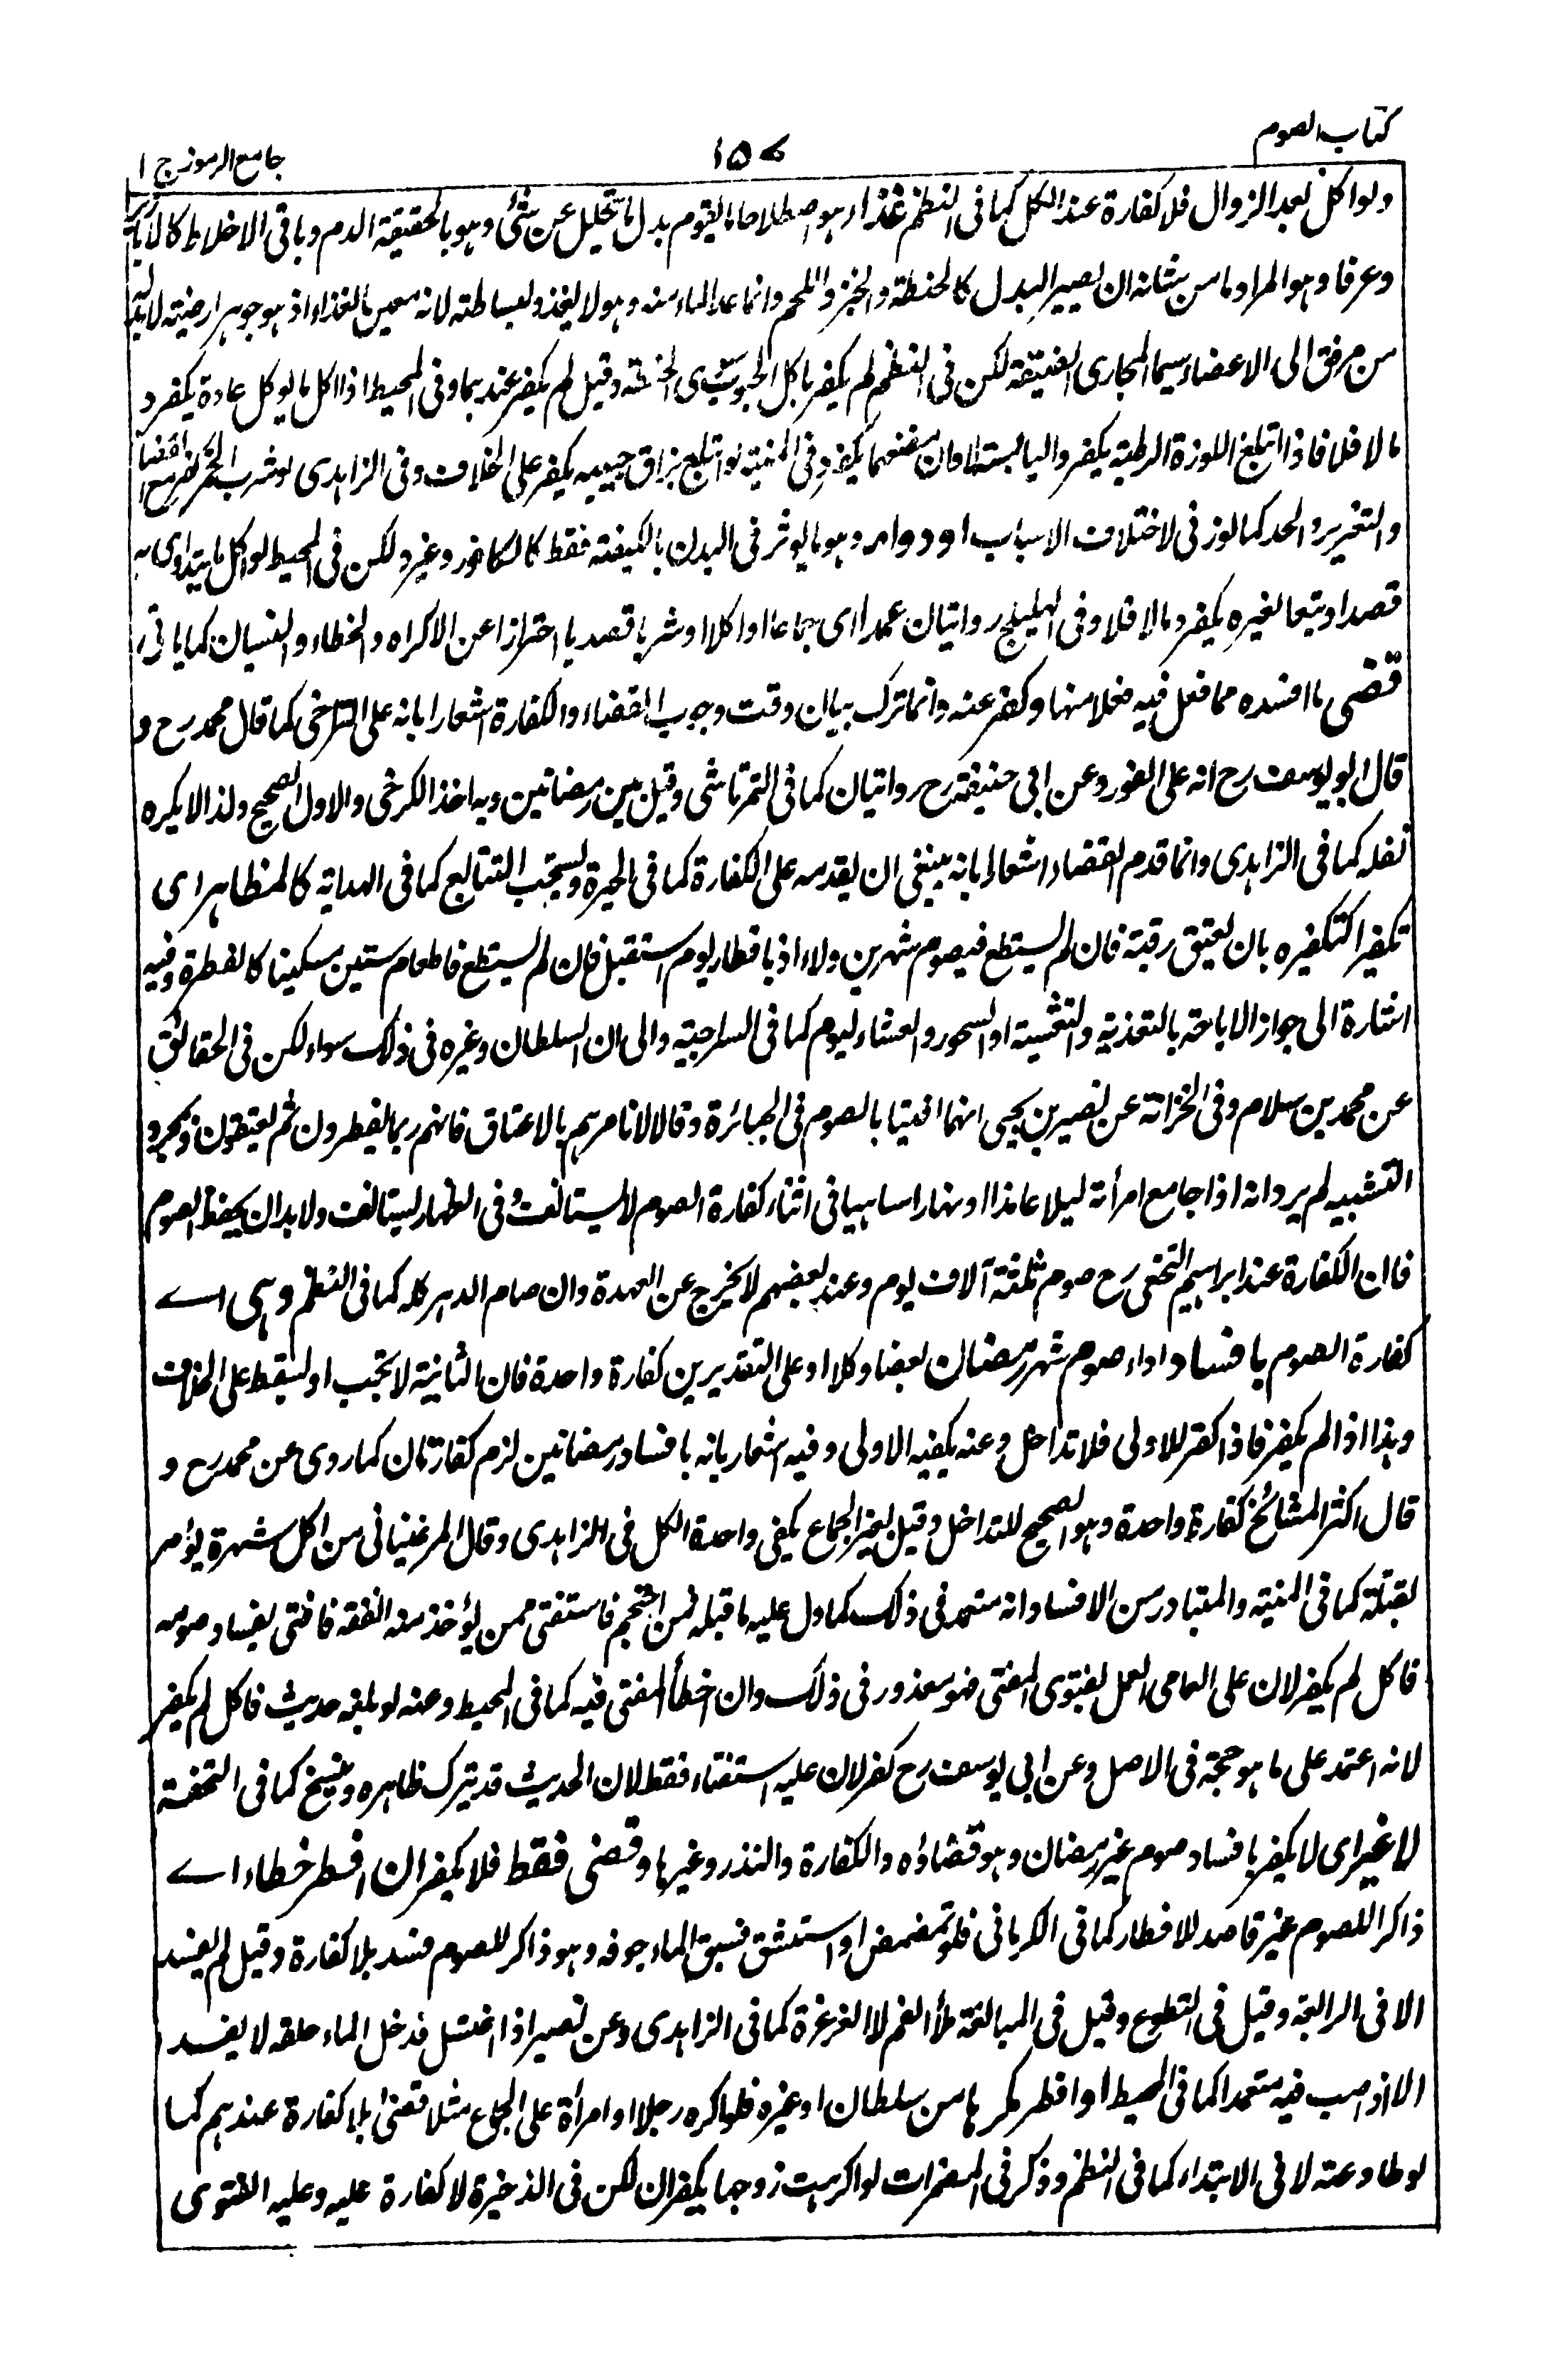 كتاب الصوم
١٥٧
جامع الرموز ج ١
ولو اكل بعد الزوال فلا كفارة عند الكل كما فى النظم غذاء هو اصطلاحا ما يقوم بدل ما يتحلل عن شئ وهو بالحقيقة الدم وباقى الاخلاط كالابازير
وعرفا وهو المراد ما من شانه ان يصير البدل كالحنطة والخبز واللحم وانما عد الماء منه وهو لا يغذو لبساطته لانه معين الغذاء اذ هو جوهر ارضيته لا بد له
من مرقق الى الاعضاء سيما المجارى الضيقة لكن فى النظم لم يكفر باكل الحبوب سوى الحنطة وقيل لم يكفر عندهما وفى المحيط اذا اكل ما يوكل عادة يكفر و
ما لا فلا فاذا ابتلع اللوزة الرطبة يكفر واليابسة لا وان مضغهما يكفر وفى المنية لو ابتلع بزاق حبيبه يكفر على الخلاف وفى الزاهدى لو شرب الخمر لزمه القضاء
والتعزير والحد كما لو زنى لاختلاف الاسباب او دواء وهو ما يوثر فى البدن بالكيفية فقط كالكافور وغيره لكن فى المحيط لو اكل ما يتداوى به
قصدا او تبعا لغيره يكفر وما لا فلا وفى الهليلج روايتان عمدا اى جماعا او اكلا او شربا قصديا احترازا عن الاكراه والخطاء والنسيان كما ياتى
قضى ما افسده مما فعل فيه فعلا منها وكفر عنه وانما ترك بيان وقت وجوب القضاء والكفارة اشعارا بانه على التراخى كما قال محمد رح و
قال ابو يوسف رح انه على الفور وعن ابى حنيفة رح روايتان كما فى التمرتاشى وقيل بين رمضانين وبه اخذ الكرخى والاول الصحيح ولذا لا يكره
نفله كما فى الزاهدى وانما قدم القضاء اشعارا بانه ينبغى ان يقدمه على الكفارة كما فى الحيرة ويستحب التتابع كما فى الهداية كالمظاهر اى
تكفيرا كتكفيره بان يعتق رقبة فان لم يستطع فيصوم شهرين ولاء اذ بافطار يوم استقبل فان لم يستطع فاطعام ستين مسكينا كالفطرة وفيه
اشارة الى جواز الاباحة بالتغذية والتعشية او السحور والعشاء ليوم كما فى السراجية والى ان السلطان وغيره فى ذلك سواء لكن فى الحقائق
عن محمد بن سلام وفى الخزانة عن نصير بن يحيى انهما افتيا بالصوم فى الجبائرة وقالا لا نامرهم بالاعتاق فانهم ربما يفطرون ثم يعتقون وبمجرد
التشبيه لم يرد انه اذا جامع امرأته ليلا عامدا او نهارا ساهيا فى اثناء كفارة الصوم لا يستانف وفى الظهار يستانف ولا بد ان يحفظ الصوم
فان الكفارة عند ابراهيم النخعى رح صوم ثلثة آلاف يوم وعند بعضهم لا يخرج عن العهدة وان صام الدهر كله كما فى النظم وهى اے
كفارة الصوم بافساد اداء صوم شهر رمضان بعضا وكلا او على التقديرين كفارة واحدة فان الثانية لا تجب او تسقط على الخلاف
وهذا اذا لم يكفر فاذا كفر للاولى فلا تداخل وعنه يكفيه الاولى وفيه اشعار بانه بافساد رمضانين لزم كفارتان كما روى عن محمد رح و
قال اكثر المشائخ كفارة واحدة وهو الصحيح للتداخل وقيل لغير الجماع يكفى واحدة الكل فى الزاهدى وقال المرغينانى من اكل شهرة يؤمر
بقتله كما فى المنية والمتبادر من الافساد انه متعمد فى ذلك كما دل عليه ما قبله فمن احتجم فاستفتى ممن يؤخذ منه الفقه فافتى بفساد صومه
فاكل لم يكفر لان على العامى العمل بفتوى المفتى فهو معذور فى ذلك وان اخطأ المفتى فيه كما فى المحيط وعنه لو بلغه حديث فاكل لم يكفر
لانه اعتمد على ما هو حجة فى الاصل وعن ابى يوسف رح كفر لان عليه استفتاء فقط لان الحديث قد يترك ظاهره وينسخ كما فى التحفة
لا غير اى لا يكفر بافساد صوم غير رمضان وهو قضاؤه والكفارة والنذر وغيرها وقضى فقط فلا يكفر ان افطر خطاء اے
ذاكرا للصوم غير قاصد للافطار كما فى الكرمانى فلو تمضمض او استنشق فسبق الماء جوفه وهو ذاكر للصوم فسد بلا كفارة وقيل لم يفسد
الا فى الرابعة وقيل فى التطوع وقيل فى المبالغة ملأ الفم لا الغرغرة كما فى الزاهدى وعن نصير اذا اغتسل فدخل الماء حلقه لا يفسد
الا اذا صب فيه متعمدا كما فى المحيط او افطر مكرها من سلطان او غيره فلو اكره رجلا او امرأة على الجماع مثلا قضى بلا كفارة عندهم كما
لو طاوعته لا فى الابتداء كما فى النظم وذكر فى المضمرات لو اكرهت زوجها يكفران لكن فى الذخيرة لا كفارة عليه وعليه الفتوى